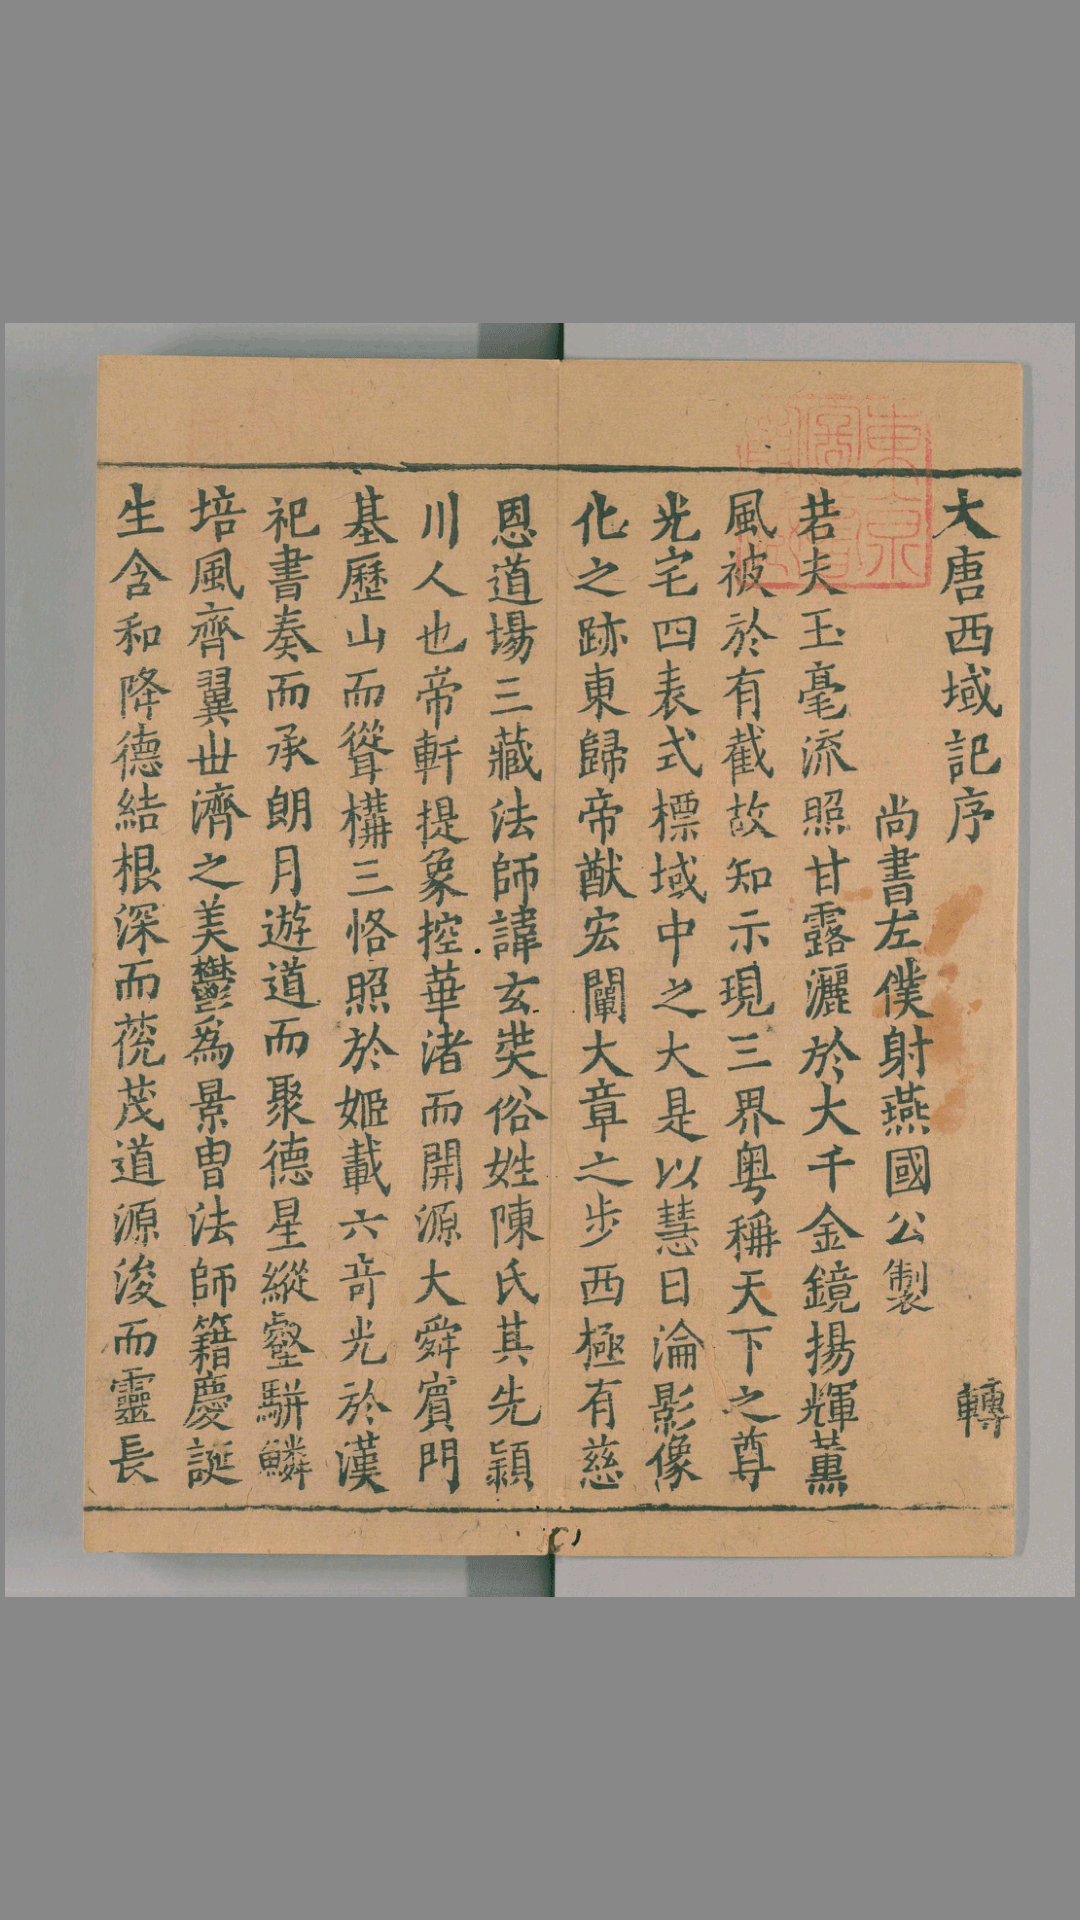 大唐西域記序
轉
尚書左僕射燕國公製
若夫玉毫流照甘露灑於大千金鏡揚輝薰
風被於有截故知示現三界粤稱天下之尊
光宅四表式標域中之大是以慧日淪影像
化之跡東歸帝猷宏闡大章之步西極有慈
恩道場三藏法師諱玄奘俗姓陳氏其先潁
川人也帝軒提象控華渚而開源大舜賓門
基歷山而聳構三恪照於姬載六奇光於漢
祀書奏而承朗月遊道而聚德星縱壑駢鱗
培風齊翼世濟之美鬱為景冑法師籍慶誕
生含和降德結根深而蓯茂道源浚而靈長